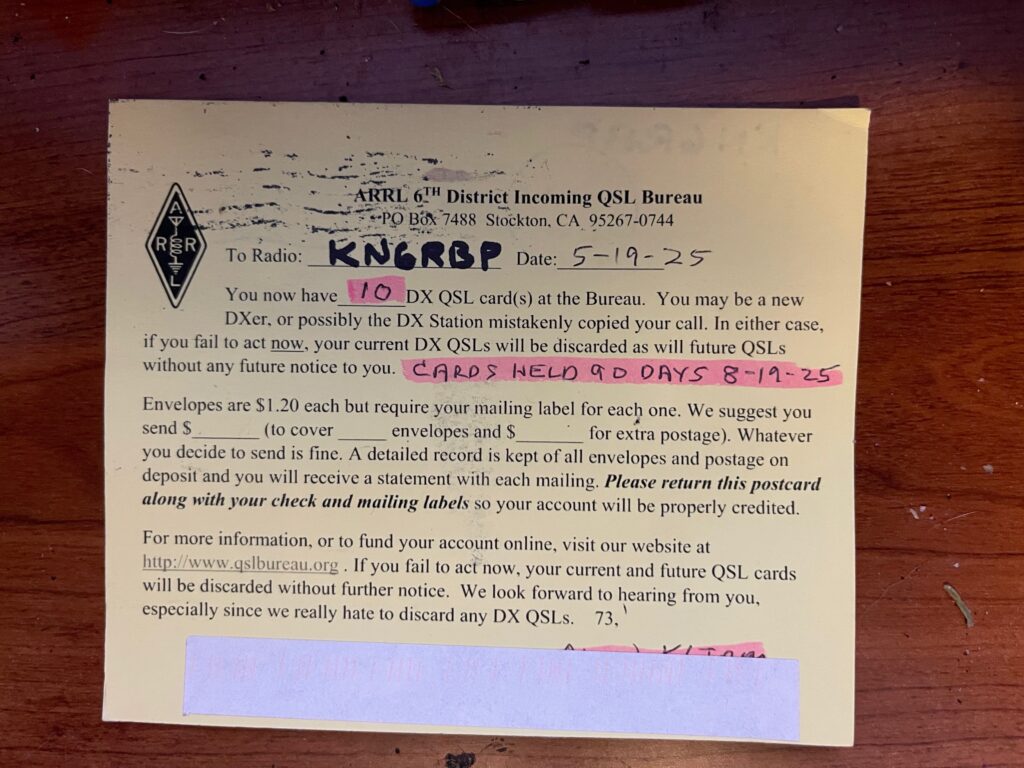 ARRL 6TH District Incoming QSL Bureau
PO Box 7488 Stockton, CA 95267-0744
A
R R
L
To Radio: KN6RBP Date: 5-19-25
You now have 10 DX QSL card(s) at the Bureau. You may be a new
DXer, or possibly the DX Station mistakenly copied your call. In either case,
if you fail to act now, your current DX QSLs will be discarded as will future QSLs
without any future notice to you. CARDS HELD 90 DAYS 8-19-25
Envelopes are $1.20 each but require your mailing label for each one. We suggest you
send $_______ (to cover _____ envelopes and $_______ for extra postage). Whatever
you decide to send is fine. A detailed record is kept of all envelopes and postage on
deposit and you will receive a statement with each mailing. Please return this postcard
along with your check and mailing labels so your account will be properly credited.
For more information, or to fund your account online, visit our website at
http://www.qslbureau.org . If you fail to act now, your current and future QSL cards
will be discarded without further notice. We look forward to hearing from you,
especially since we really hate to discard any DX QSLs. 73,